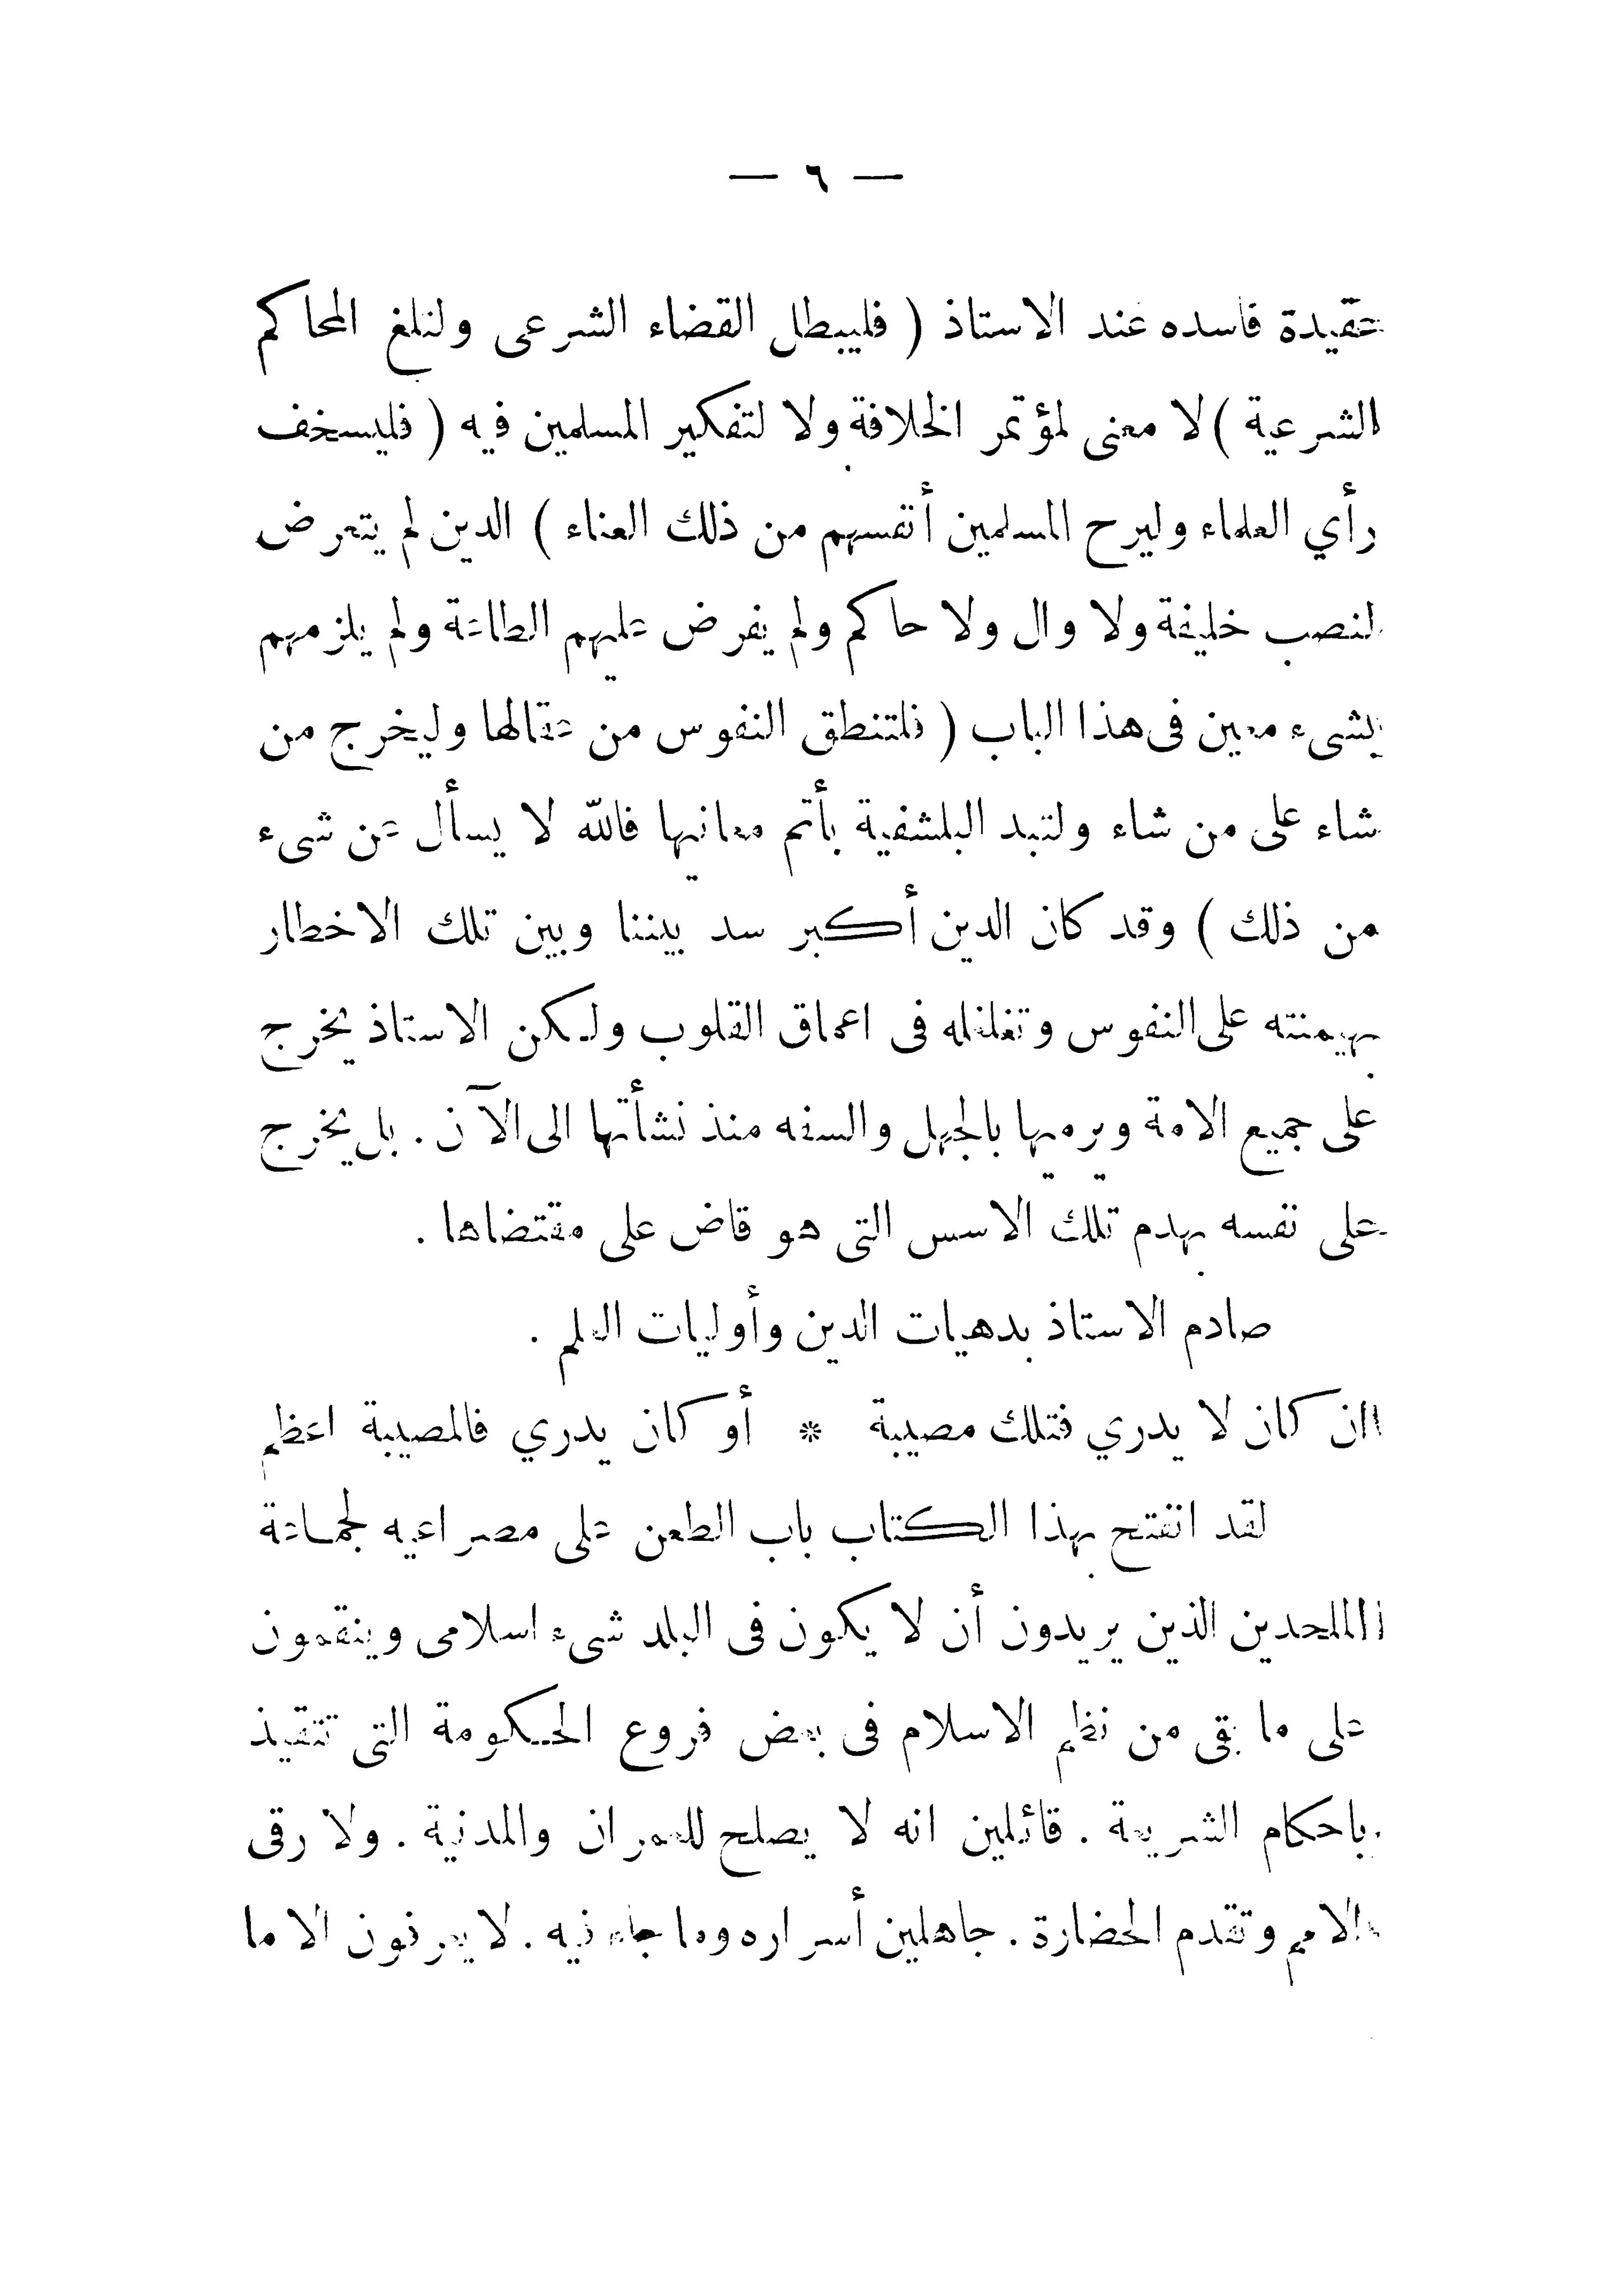 — ٦ —
عقيدة فاسده عند الاستاذ ( فليبطل القضاء الشرعى ولنلغ المحاكم
الشرعية ) لا معنى لمؤتمر الخلافة ولا لتفكير المسلمين فيه ( فليسخف
رأي العلماء وليرح المسلمين أنفسهم من ذلك العناء ) الدين لم يتعرض
لنصب خليفة ولا وال ولا حاكم ولم يفرض عليهم الطاعة ولم يلزمهم
بشىء معين فى هذا الباب ( فلتنطق النفوس من عقالها وليخرج من
شاء على من شاء ولتبد البلشفية بأتم معانيها فالله لا يسأل عن شىء
من ذلك ) وقد كان الدين أكبر سد بيننا وبين تلك الاخطار
بهيمنته على النفوس وتغلغله فى اعماق القلوب ولكن الاستاذ يخرج
على جميع الامة ويرميها بالجهل والسفه منذ نشأتها الى الآن . بل يخرج
على نفسه بهدم تلك الاسس التى هو قاض على مقتضاها .
صادم الاستاذ بدهيات الدين وأوليات العلم .
ان كان لا يدري فتلك مصيبة * أو كان يدري فالمصيبة اعظم
لقد انفتح بهذا الكتاب باب الطعن على مصراعيه لجماعة
الملحدين الذين يريدون أن لا يكون فى البلد شىء اسلامى وينقمون
على ما بقى من نظم الاسلام فى بعض فروع الحكومة التى تتقيذ
باحكام الشريعة . قائلين انه لا يصلح للعمران والمدنية . ولا رقى
الامم وتقدم الحضارة . جاهلين أسراره وما جاء فيه . لا يعرفون الا ما